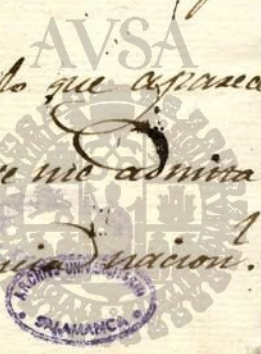 AVSA
lo que aparece
me admira
nacion.
ARCHIVO UNIVERSITARIO
SALAMANCA